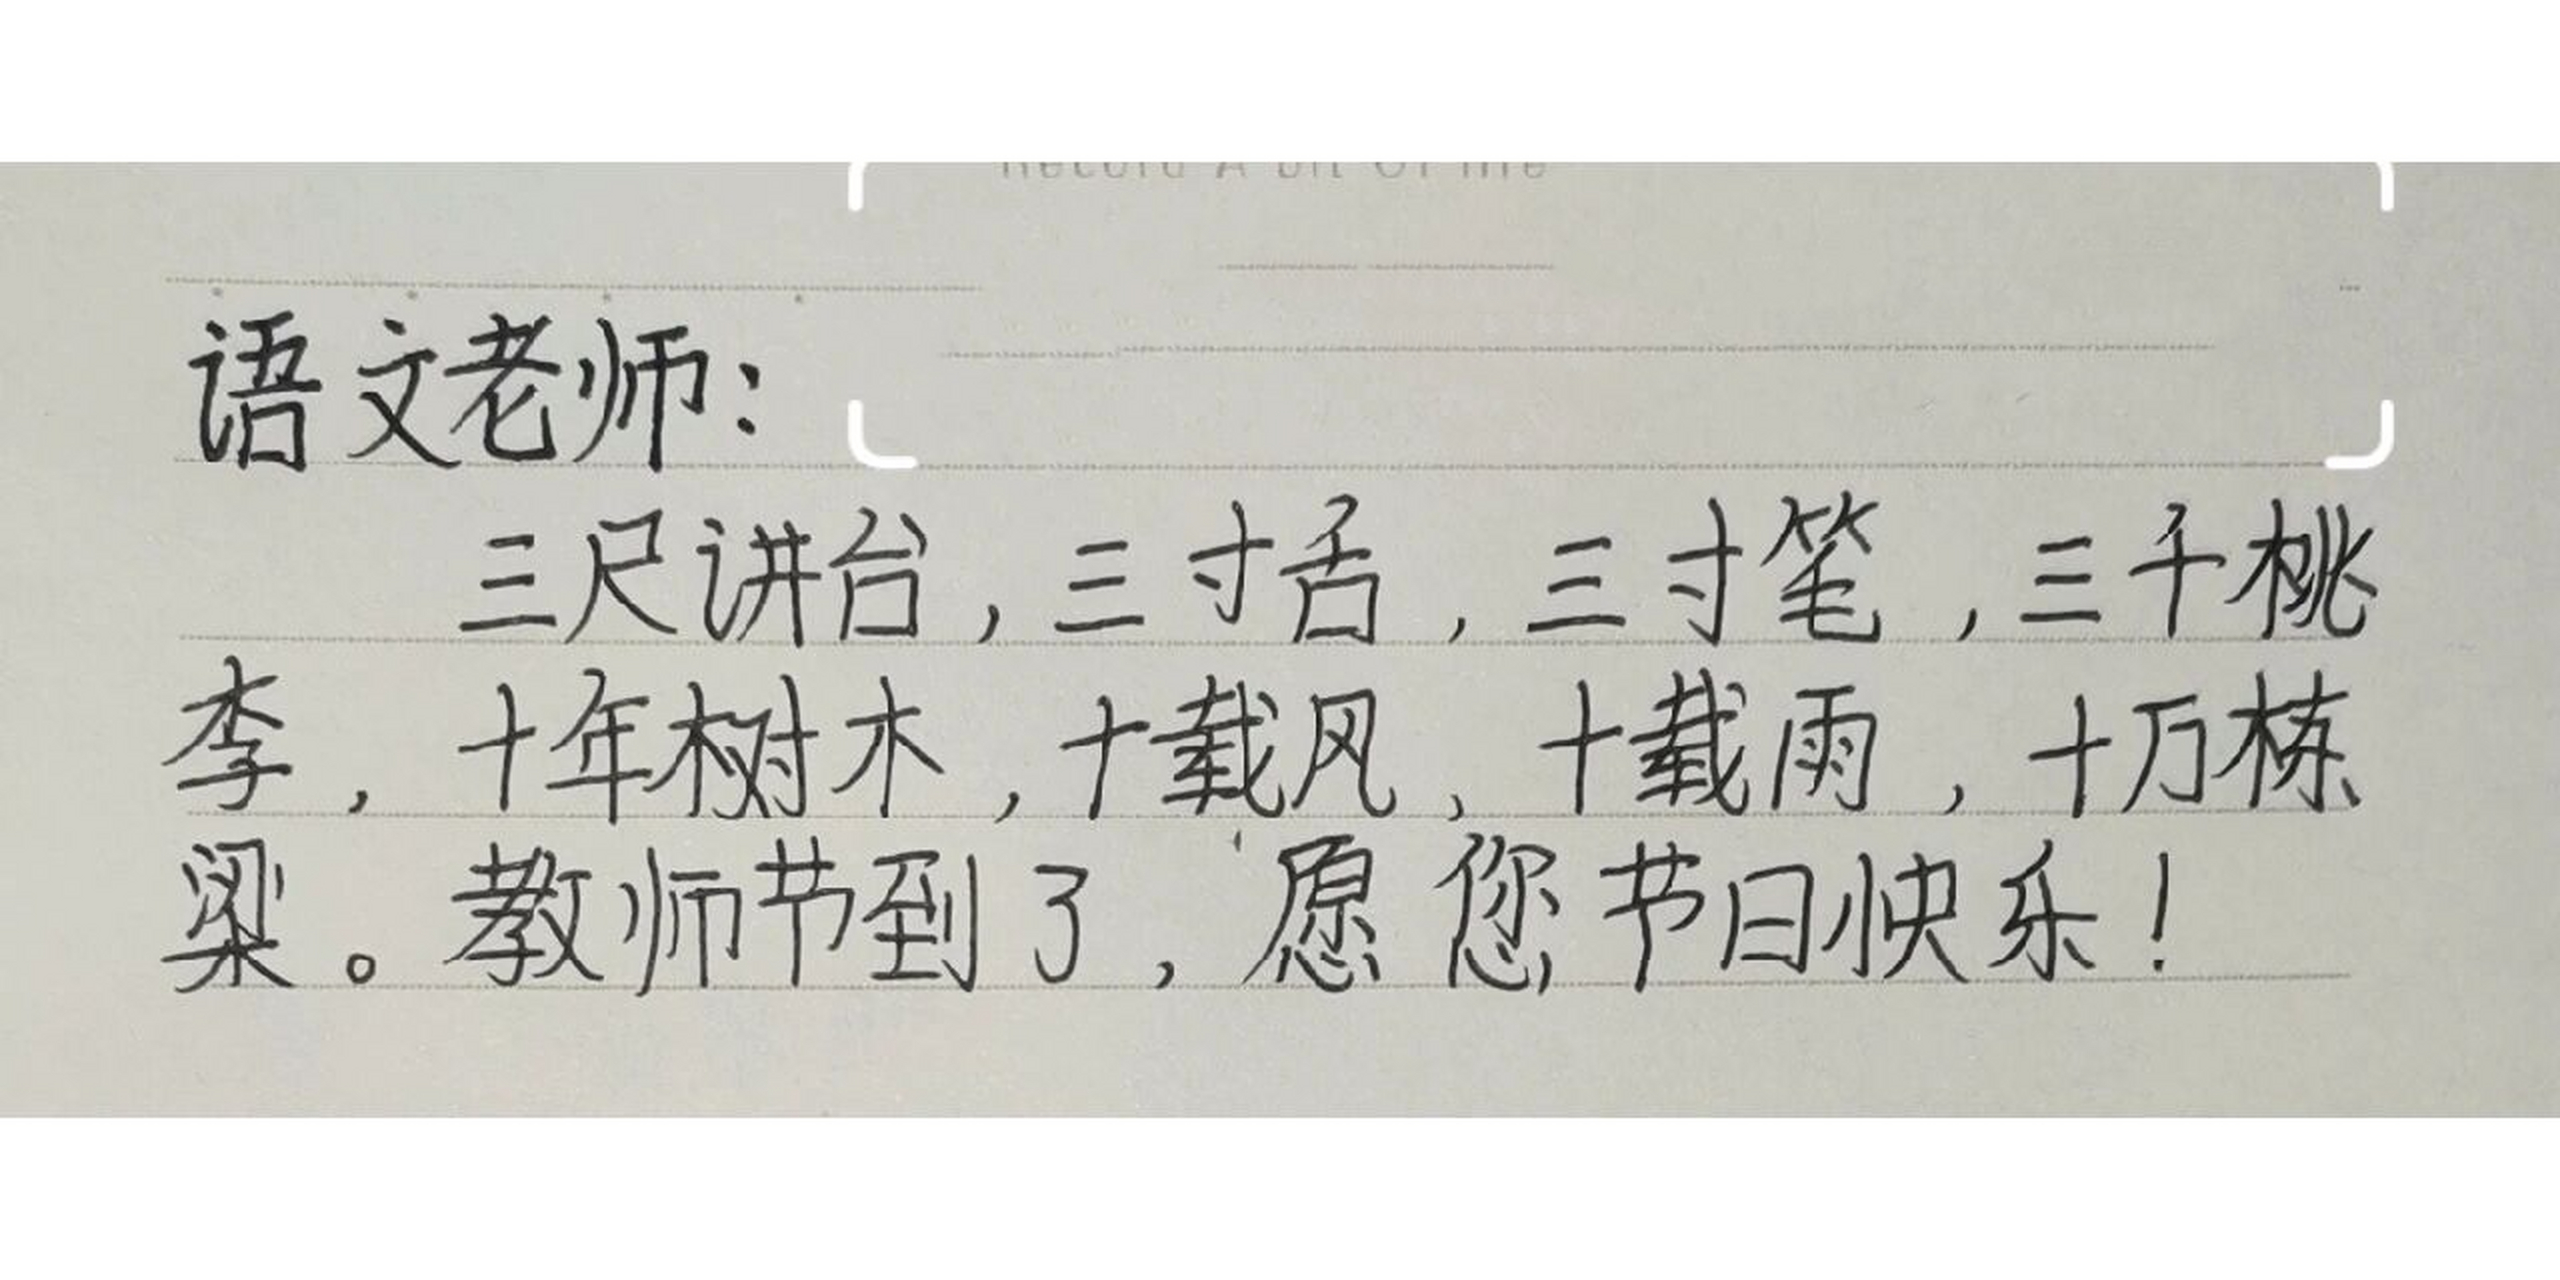 Record A bit Of me
语文老师：
三尺讲台，三寸舌，三寸笔，三千桃
李，十年树木，十载风，十载雨，十万栋
梁。教师节到了，愿您节日快乐！